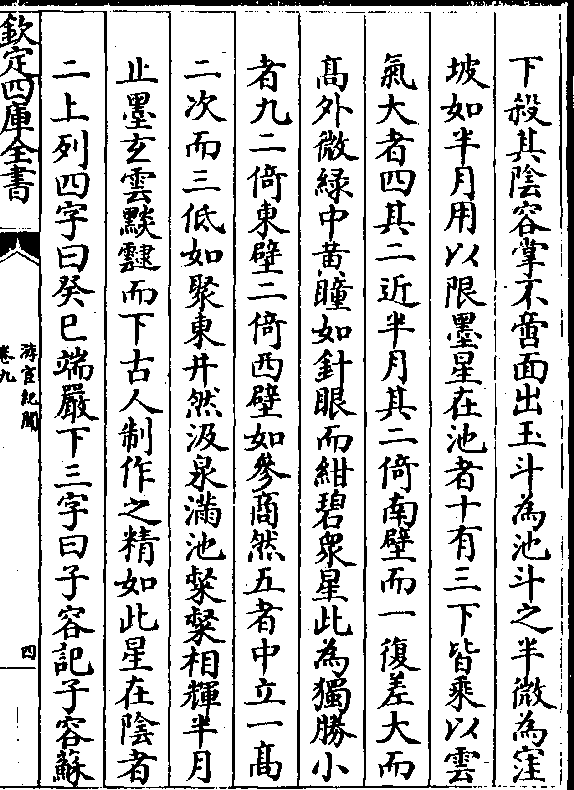 下殺其陰容掌不啻面出玉斗為池斗之半微為窪
坡如半月用以限墨星在池者十有三下皆乘以雲
氣大者四其二近半月其二倚南壁而一復差大而
高外微綠中黄瞳如針眼而紺碧衆星此為獨勝小
者九二倚東壁二倚西壁如參商然五者中立一高
二次而三低如聚東井然汲泉滿池粲粲相輝半月
止墨玄雲黕靆而下古人制作之精如此星在陰者
二上列四字曰癸巳端嚴下三字曰子容記子容蘇
欽定四庫全書
游宦紀聞
卷九
四